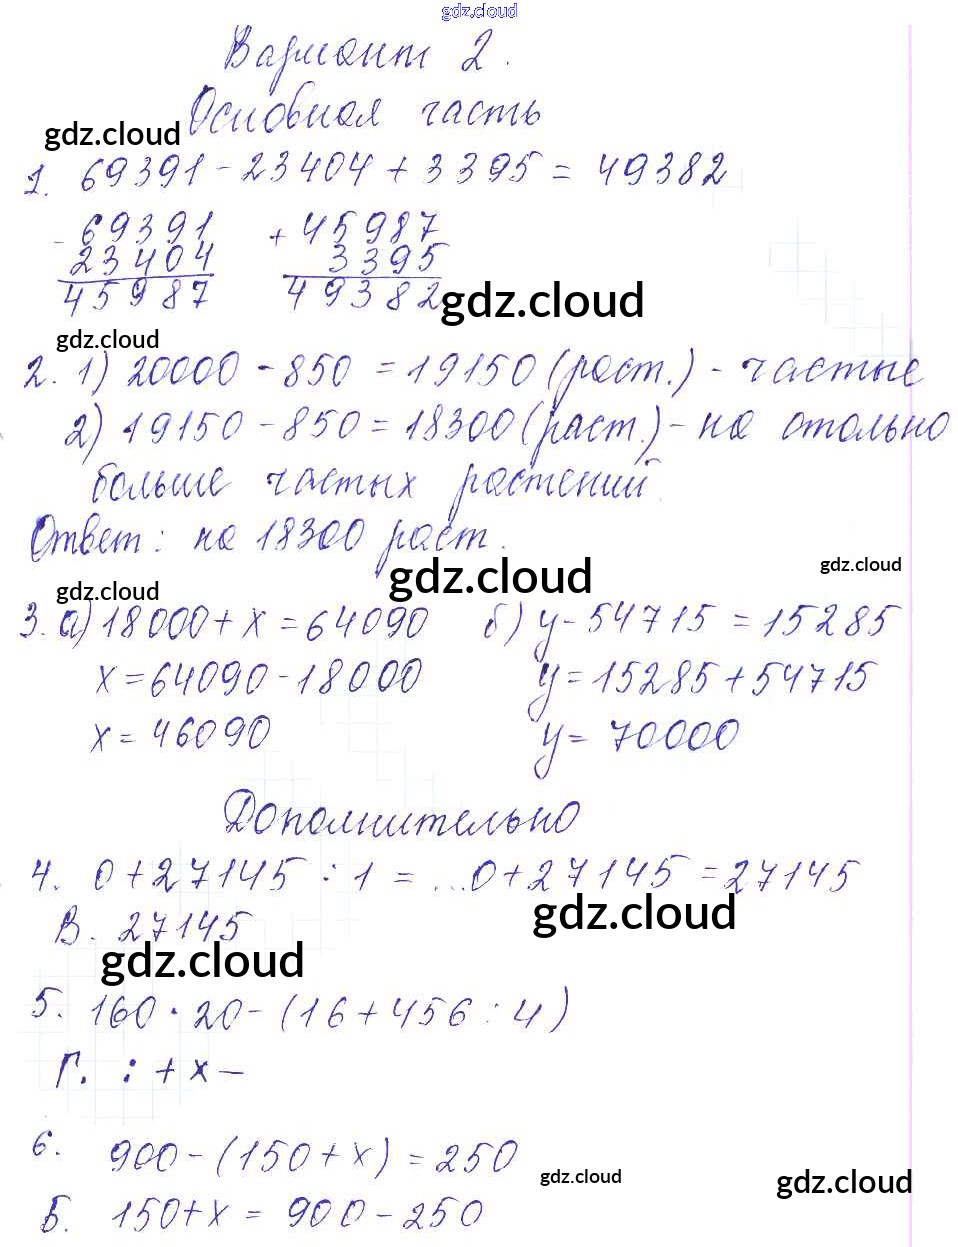 gdz.cloud
Вариант 2.
Основная часть
gdz.cloud
1. 69391 - 23404 + 3395 = 49382
- 69391 + 45987
23404 3395
45987 49382
gdz.cloud
gdz.cloud
2. 1) 20000 - 850 = 19150 (раст.) - частые
2) 19150 - 850 = 18300 (раст.) - на столько
больше частых растений.
Ответ: на 18300 раст.
gdz.cloud
gdz.cloud
gdz.cloud
3. а) 18000 + x = 64090 б) y - 54715 = 15285
x = 64090 - 18000 y = 15285 + 54715
x = 46090 y = 70000
Дополнительно
4. 0 + 27145 : 1 = ...0 + 27145 = 27145
gdz.cloud
В. 27145
gdz.cloud
5. 160 · 20 - (16 + 456 : 4)
Г. : + x -
6. 900 - (150 + x) = 250
gdz.cloud
gdz.cloud
Б. 150 + x = 900 - 250